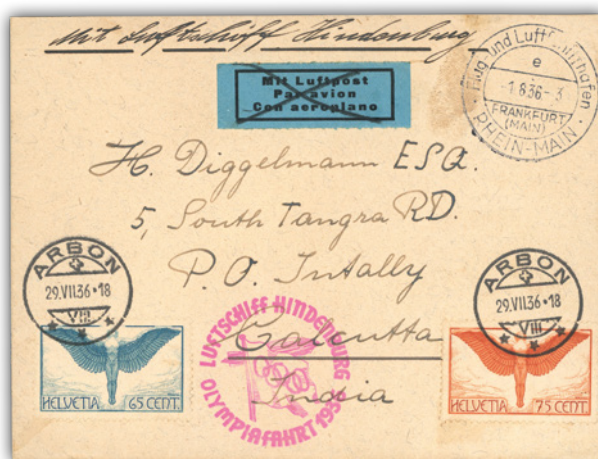 Mit Luftschiff Hindenburg
Mit Luftpost
Par avion
Con aeroplano
Flug und Luftschiffhafen
e
-1.8.36-3
FRANKFURT
(MAIN)
RHEIN-MAIN
H. Diggelmann ESQ.
5, South Tangra RD.
P.O. Intally
Calcutta
India
ARBON
29.VII.36·18
VIII
ARBON
29.VII.36·18
VIII
LUFTSCHIFF HINDENBURG
OLYMPIAFAHRT 1936
HELVETIA 65 CENT.
HELVETIA 75 CENT.